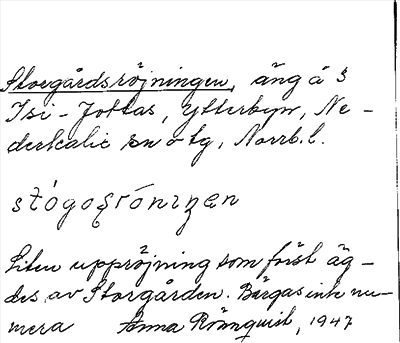 Storgårdsröjningen, äng å 3
Isi-Jottas, Ytterbyn, Ne-
derkalix sn o tg, Norrb.l.
stógoʂróniŋen
Liten uppröjning som först äg-
des av Storgården. Bärgas inte nu-
mera Anna Rönnquist, 1947